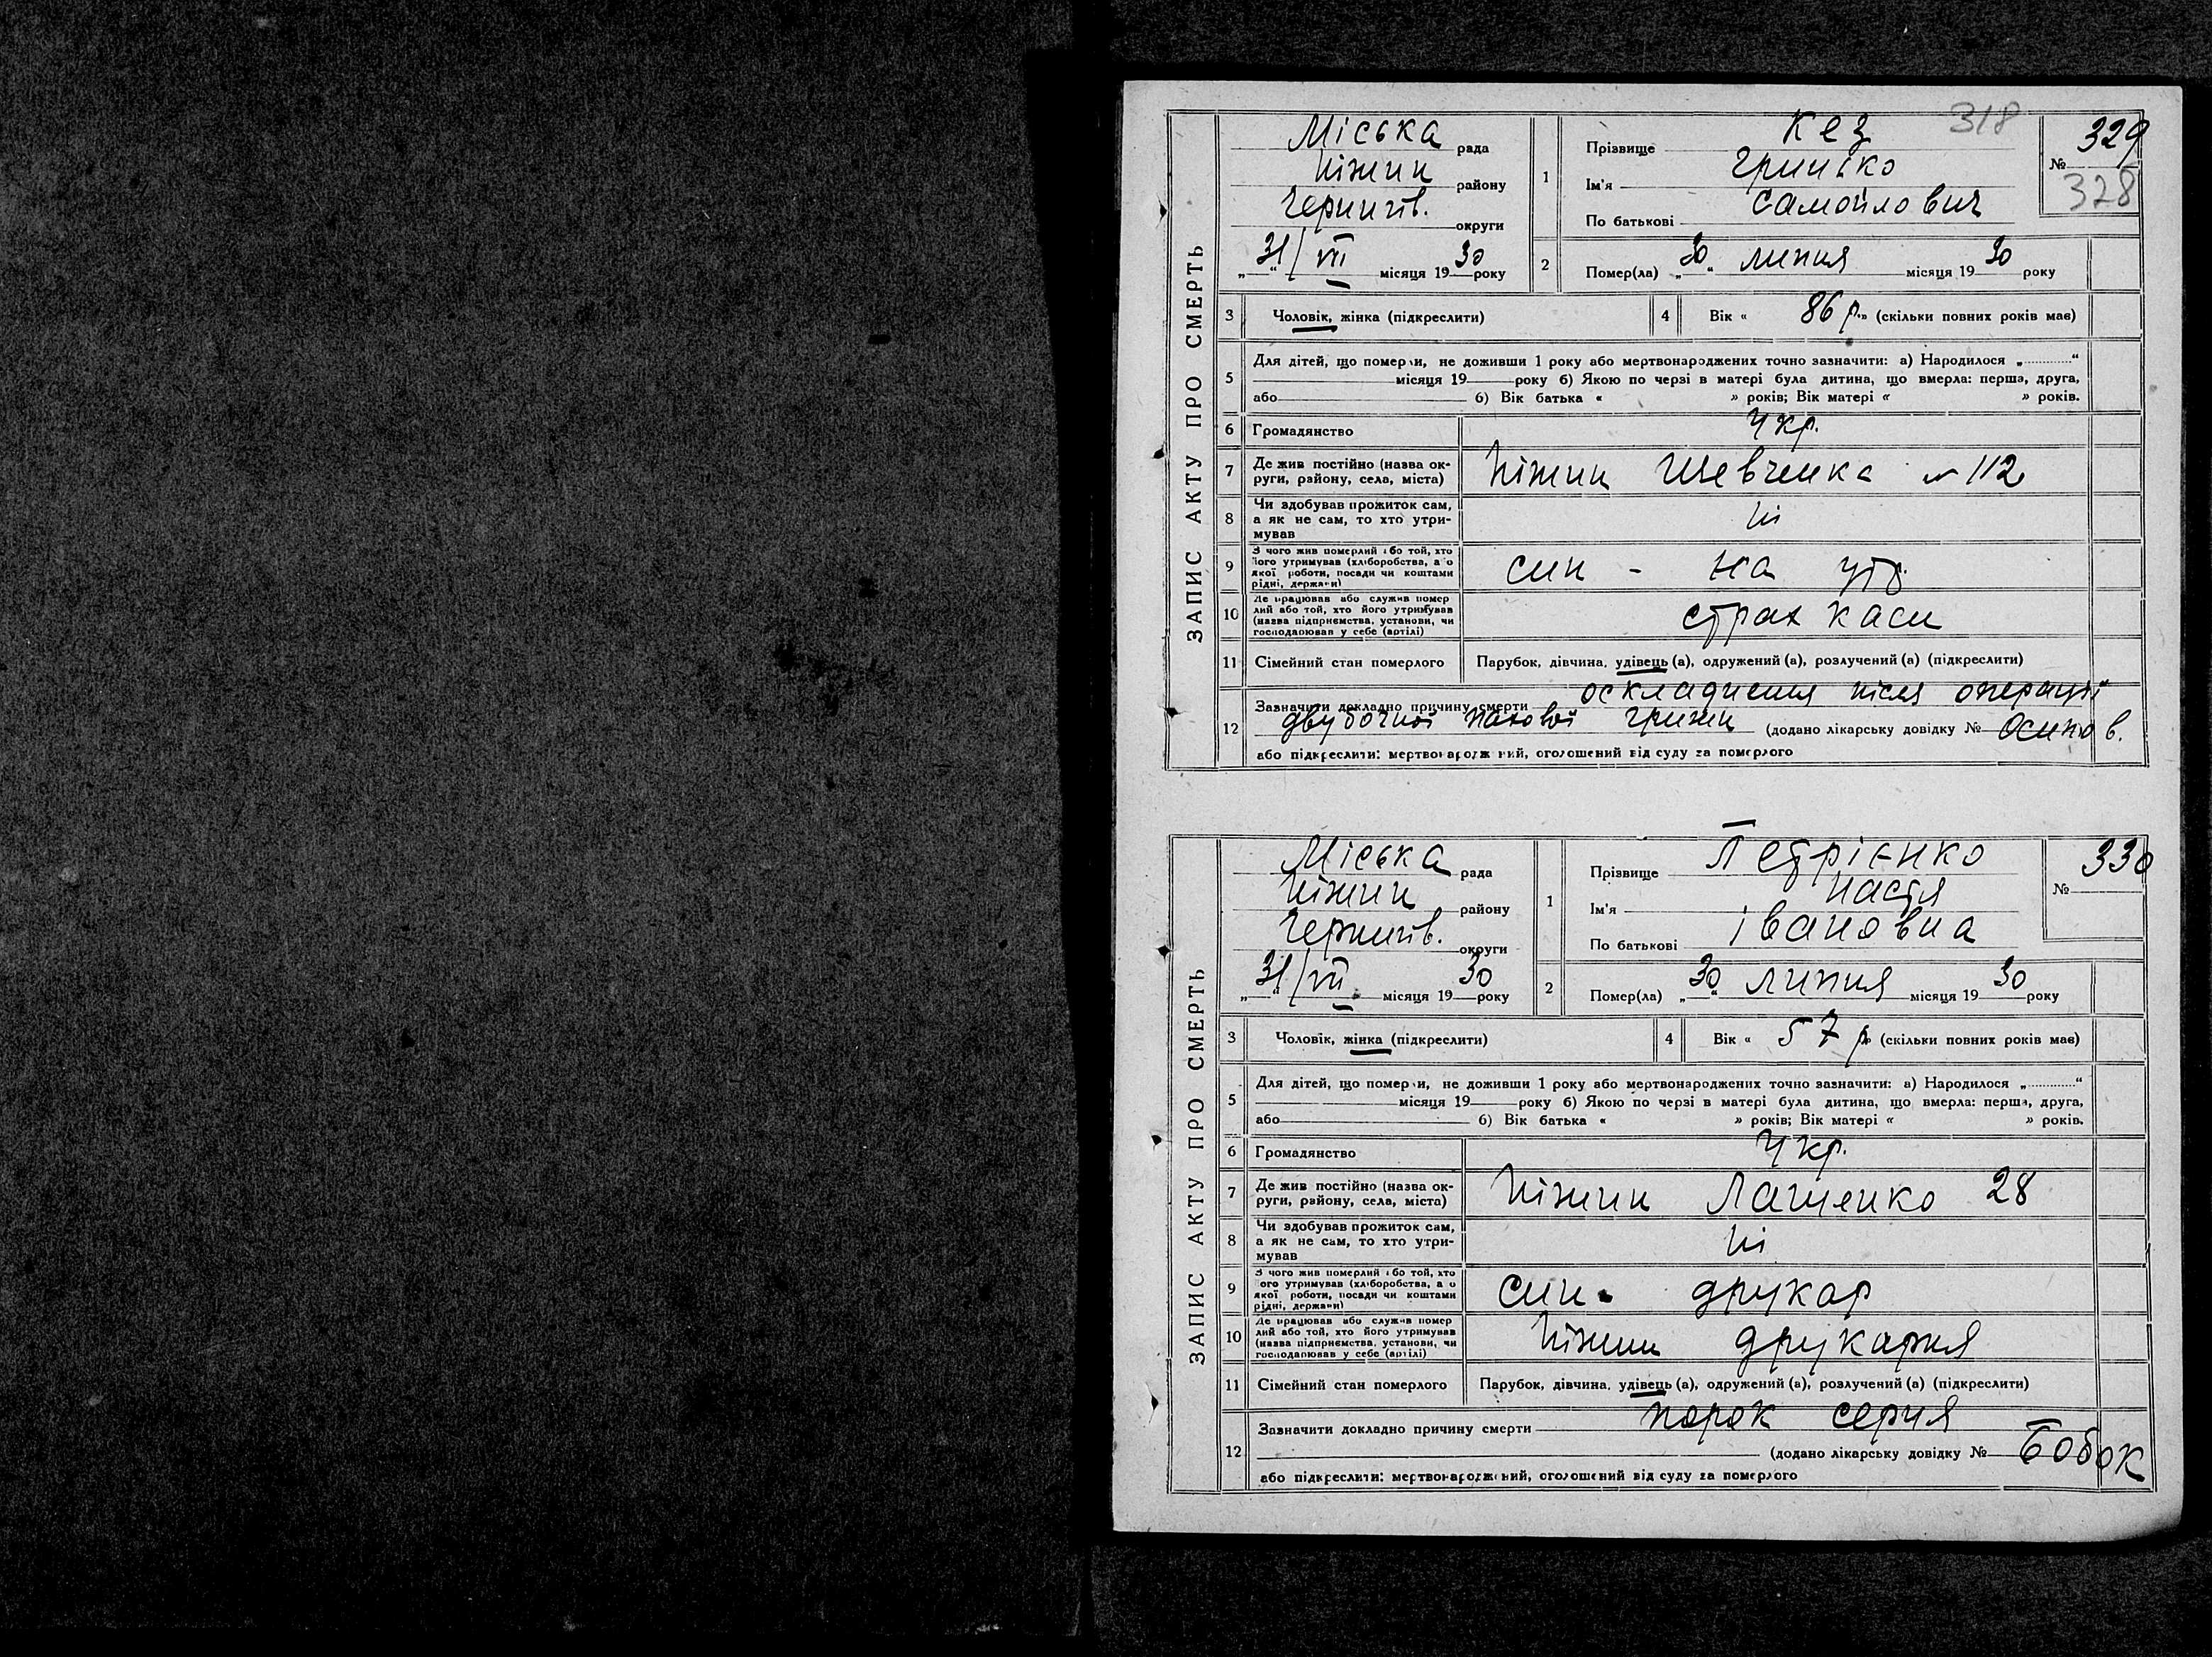 318
ЗАПИС АКТУ ПРО СМЕРТЬ
Міська рада
Ніжин району
Чернигів. округи
„31“/VII місяця 1930 року
1
Прізвище Кез
Ім'я Гринько
По батькові Самойлович
№ 329
328
2
Помер(ла) „30“ липня місяця 1930 року
3 Чоловік, жінка (підкреслити)
4 Вік « 86 р.» (скільки повних років має)
5
Для дітей, що померли, не доживши 1 року або мертвонароджених точно зазначити: а) Народилося „............“
місяця 19 року б) Якою по черзі в матері була дитина, що вмерла: перша, друга,
або б) Вік батька « » років; Вік матері « » років.
6 Громадянство Укр.
7 Де жив постійно (назва ок-
руги, району, села, міста) Ніжин Шевченка № 112
8 Чи здобував прожиток сам,
а як не сам, то хто утри-
мував ні
9 З чого жив померлий або той, хто
його утримував (хліборобства, або
якої роботи, посади чи коштами
рідні, держави) син - на
10 Де працював або служив помер
лий або той, хто його утримував
(назва підприємства, установи, чи
господарював у себе (артілі) страх каси
11 Сімейний стан померлого Парубок, дівчина, удівець (а), одружений (а), розлучений (а) (підкреслити)
12 Зазначити докладно причину смерти оскладнення після операції
двубочної пахової грижи (додано лікарську довідку № Осипов.
або підкреслити: мертвонароджений, оголошений від суду за померлого
ЗАПИС АКТУ ПРО СМЕРТЬ
Міська рада
Ніжин району
Чернигів. округи
„31“/VII місяця 1930 року
1
Прізвище Петрієнко
Ім'я Настя
По батькові Івановна
№ 330
2
Помер(ла) „30“ липня місяця 1930 року
3 Чоловік, жінка (підкреслити)
4 Вік « 57 р» (скільки повних років має)
5
Для дітей, що померли, не доживши 1 року або мертвонароджених точно зазначити: а) Народилося „............“
місяця 19 року б) Якою по черзі в матері була дитина, що вмерла: перша, друга,
або б) Вік батька « » років; Вік матері « » років.
6 Громадянство Укр.
7 Де жив постійно (назва ок-
руги, району, села, міста) Ніжин Лащенко 28
8 Чи здобував прожиток сам,
а як не сам, то хто утри-
мував ні
9 З чого жив померлий або той, хто
його утримував (хліборобства, або
якої роботи, посади чи коштами
рідні, держави) син. друкар
10 Де працював або служив помер
лий або той, хто його утримував
(назва підприємства, установи, чи
господарював у себе (артілі) Ніжин друкарня
11 Сімейний стан померлого Парубок, дівчина, удівець (а), одружений (а), розлучений (а) (підкреслити)
12 Зазначити докладно причину смерти порок серця
(додано лікарську довідку № Бобок
або підкреслити: мертвонароджений, оголошений від суду за померлого